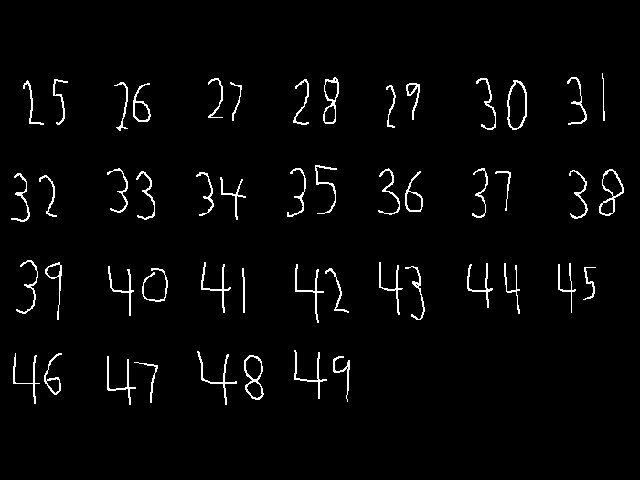 25 26 27 28 29 30 31
32 33 34 35 36 37 38
39 40 41 42 43 44 45
46 47 48 49